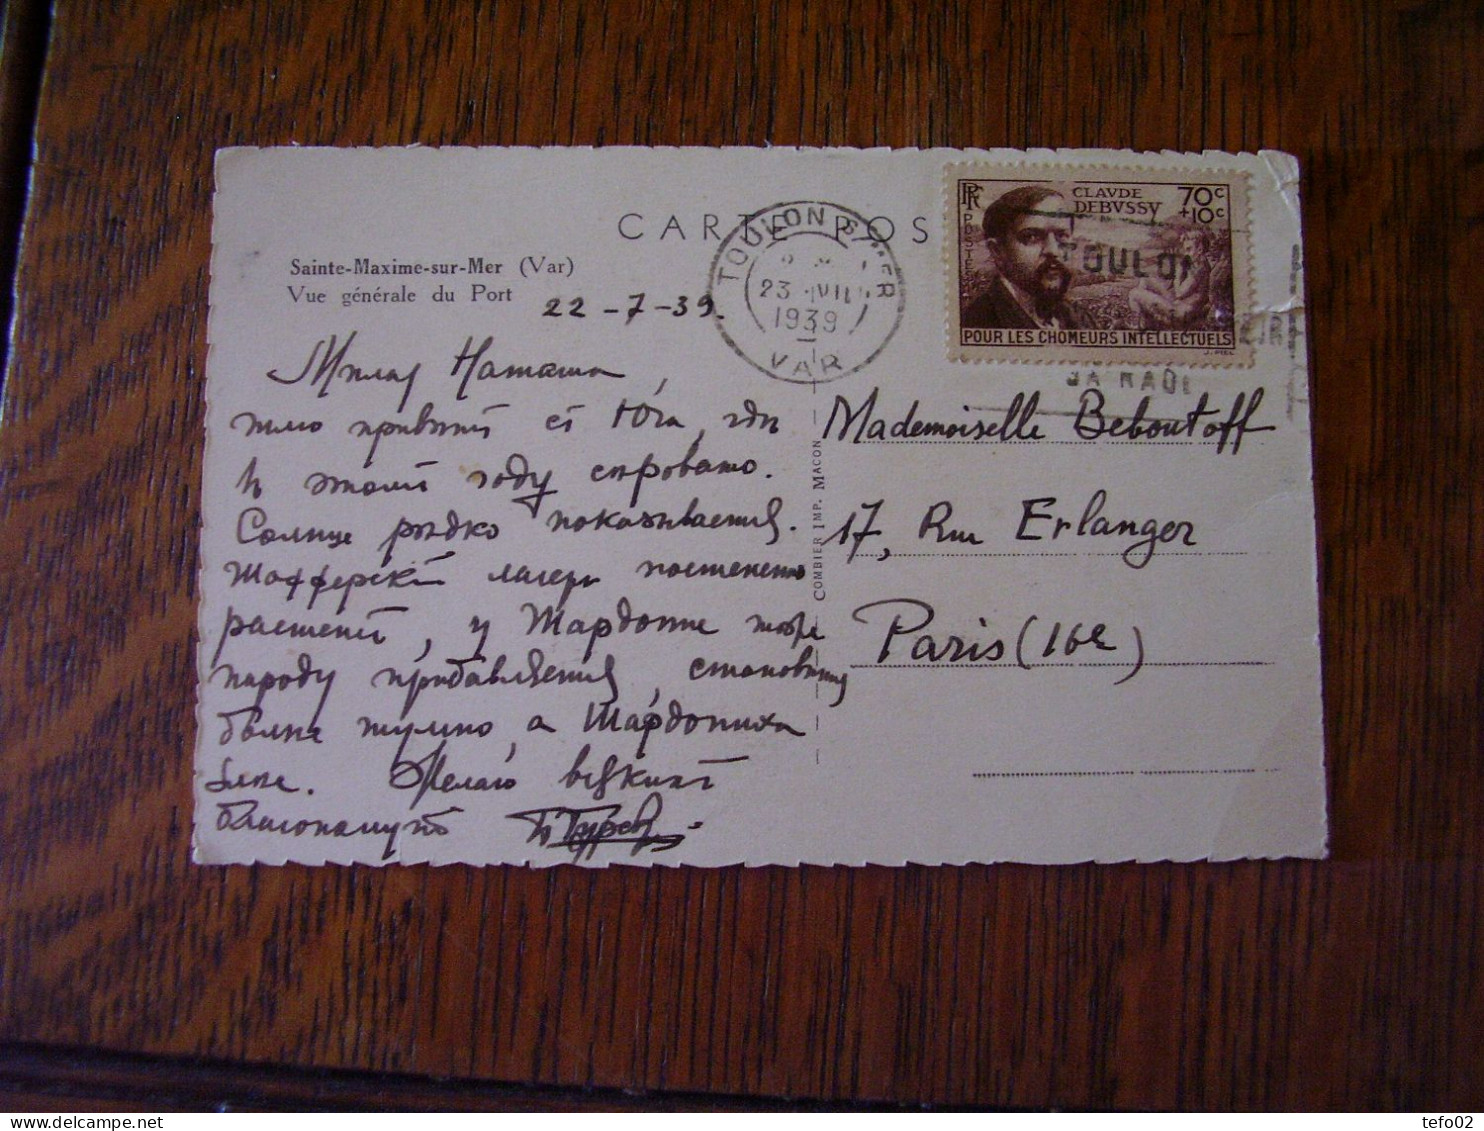 CARTE POS
Sainte-Maxime-sur-Mer (Var)
Vue générale du Port
22-7-39.
TOULON S/MER
23 VII
1939
VAR
RF
POSTES
CLAVDE
DEBVSSY
70c
+10c
TOULON
POUR LES CHOMEURS INTELLECTUELS
SA RADE
COMBIER IMP. MACON
Милая Наташа,
шлю привѣтъ съ Юга, гдѣ
въ этомъ году сыровато.
Солнце рѣдко показывается.
Шофферскій лагерь постепенно
растетъ, у Шардоне тоже
народу прибавляется, становится
болѣе шумно, а Шардониха
злѣе. Желаю всякихъ
благополучій
Mademoiselle Beboutoff
17, Rue Erlanger
Paris (16e)
tefo02